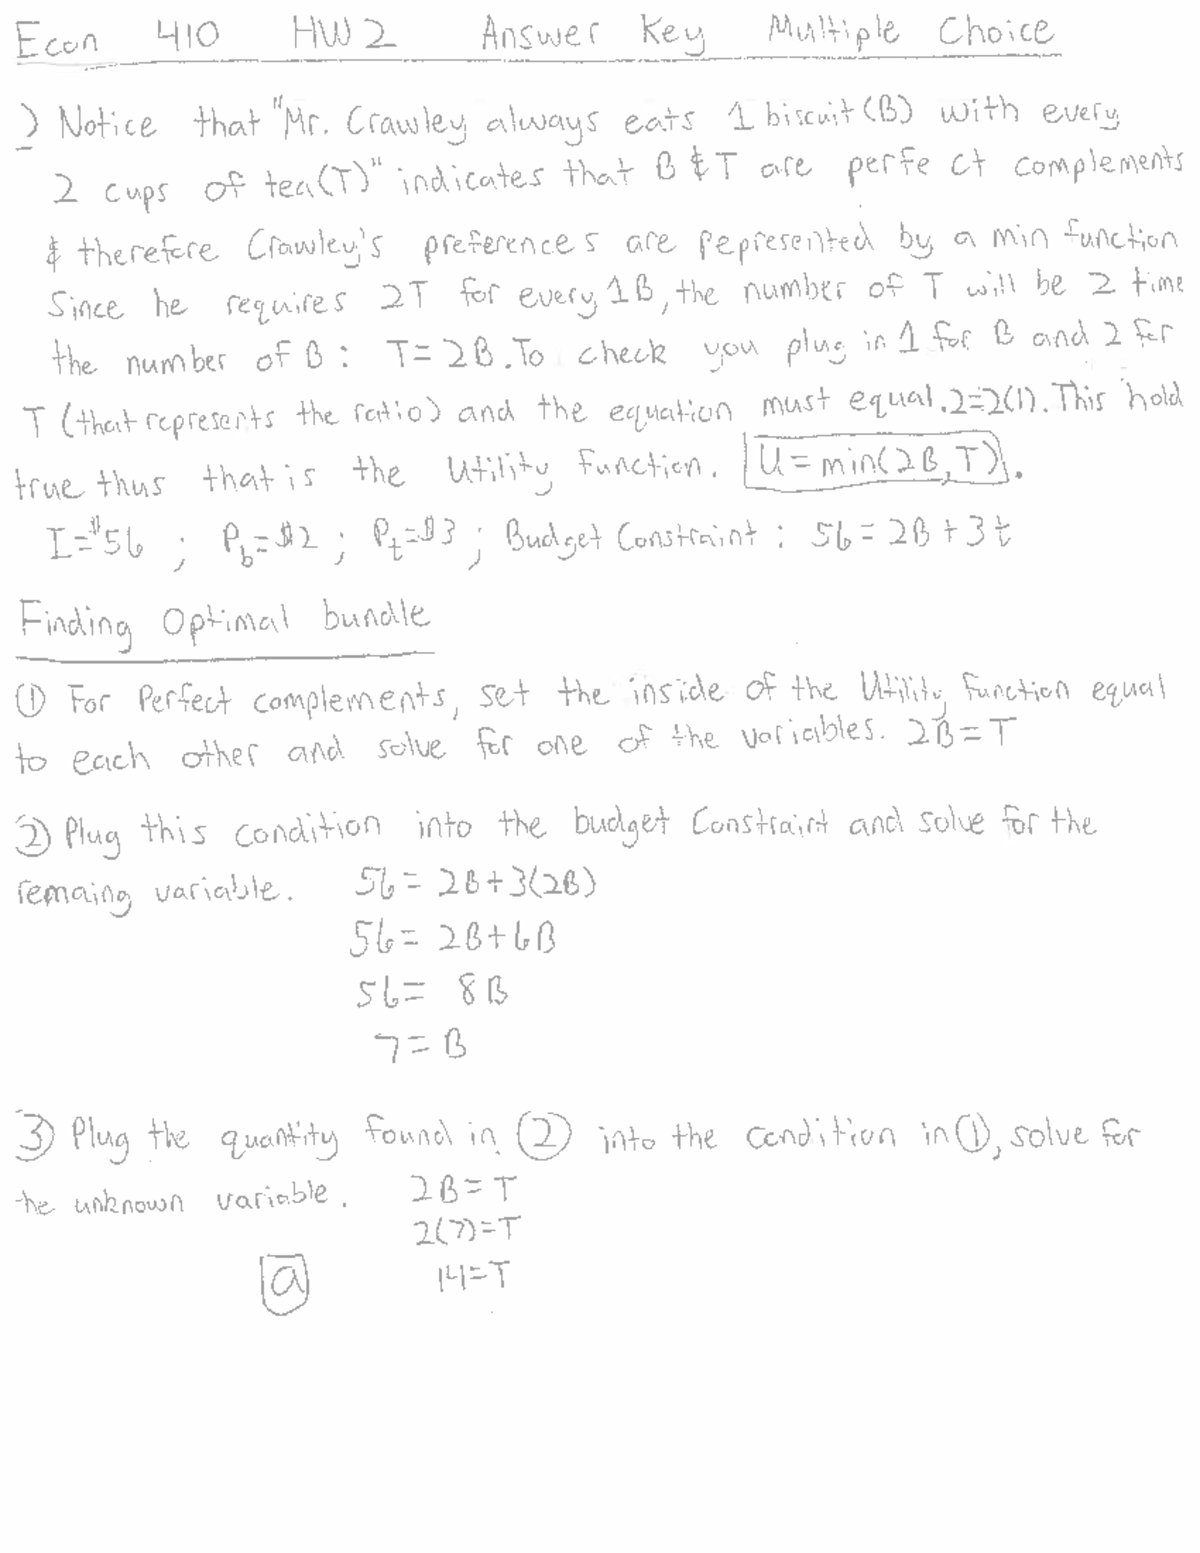 Econ 410 HW2 Answer Key Multiple Choice
) Notice that "Mr. Crawley always eats 1 biscuit (B) with every
2 cups of tea(T)" indicates that B & T are perfect complements
& therefore Crawley's preferences are pepresented by a min function
Since he requires 2T for every 1B, the number of T will be 2 time
the number of B : T=2B. To check you plug in 1 for B and 2 for
T (that represents the ratio) and the equation must equal. 2=2(1). This hold
true thus that is the Utility Function. U=min(2B,T).
I=$56 ; Pb=$2 ; Pt=$3 ; Budget Constraint : 56=2B+3t
Finding Optimal bundle
① For Perfect complements, set the inside of the Utility Function equal
to each other and solve for one of the variables. 2B=T
② Plug this condition into the budget Constraint and solve for the
remaing variable. 56= 2B+3(2B)
56= 2B+6B
56= 8B
7=B
③ Plug the quantity found in ② into the condition in ①, solve for
the unknown variable. 2B=T
2(7)=T
a 14=T